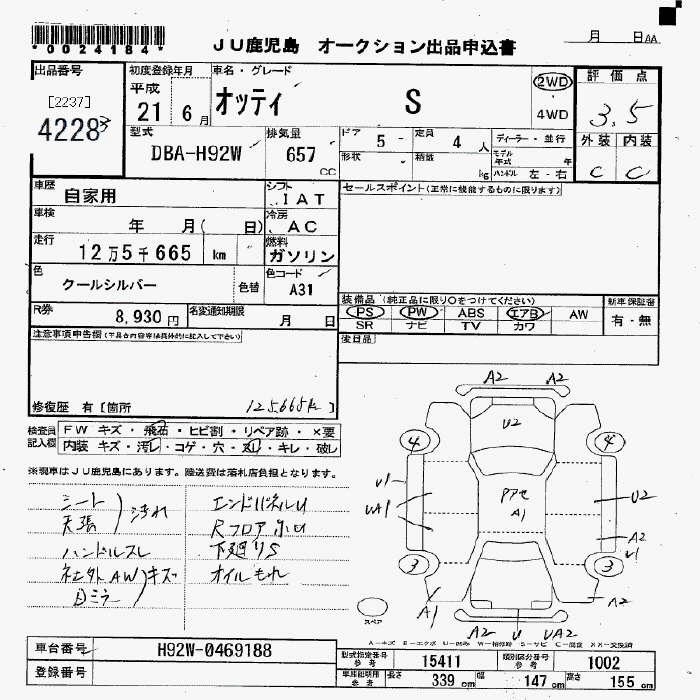 *0024184*
JU鹿児島 オークション出品申込書
月 日AA
出品番号
[2237]
4228
初度登録年月
平成
21 6月
車名・グレード
オッティ S
2WD
4WD
評価点
3.5
外装 内装
C C
型式
DBA-H92W
排気量
657
cc
ドア
5 -
形状
定員
4 人
積載
kg
ディーラー・並行
モデル年式 年
ハンドル 左・右
車歴
自家用
シフト
IAT
車検
年 月( 日)
冷房
AC
走行
12万5千665 km
燃料
ガソリン
色
クールシルバー
色替
色コード
A31
R券
8,930円
名変通知期限
月 日
セールスポイント(正常に機能するものに限ります)
装備品(純正品に限り○をつけてください)
新車保証書
PS PW ABS エアB AW
有・無
SR ナビ TV カワ
後日品
注意事項申告欄(不具合内容等は具体的に記入して下さい)
修復歴 有[箇所 125665k]
検査員記入欄
FW キズ・飛石・ヒビ割・リペア跡・×要
内装 キズ・汚れ・コゲ・穴・スレ・キレ・破レ
※現車はJU鹿児島にあります。陸送費は落札店負担となります。
シート
天張
汚れ
ハンドルスレ
社外AWキズ
目ミラ
エンドパネルU
Rフロア小U
下廻りS
オイルもれ
A2 A2
U2
4 4
U1
UA1
PアセA1
U2
A2
U1
3 3
A1
A2
A2 U UA2
スペア
A-キズ E-エクボ U-凹み W-補修跡 S-サビ C-腐食 XX-交換済
車台番号
H92W-0469188
登録番号
型式指定番号
参考
15411
類別区分番号
参考
1002
車庫証明用
参考
長さ
339 cm
幅
147 cm
高さ
155 cm